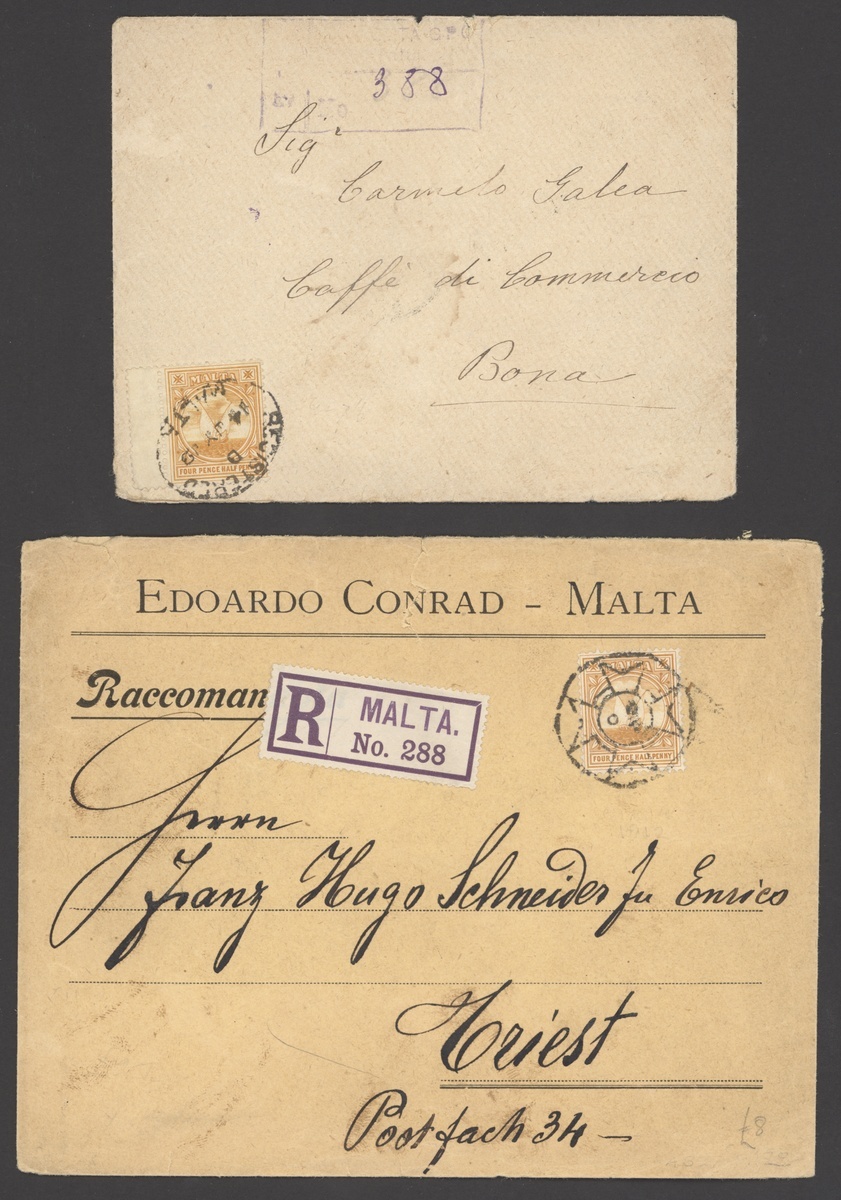 388
Sigr
Carmelo Galea
Caffè di Commercio
Bona
MALTA
FOUR PENCE HALF PENNY
REGISTERED
MALTA
EDOARDO CONRAD – MALTA
Raccoman
R MALTA.
No. 288
MALTA
FOUR PENCE HALFPENNY
Herrn
Franz Hugo Schneider fu Enrico
Triest
Postfach 34 –
£8